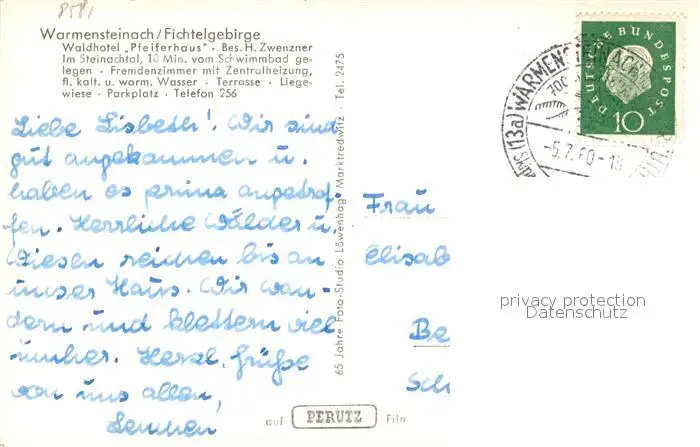 858,
Warmensteinach/Fichtelgebirge
Waldhotel „Pfeiferhaus" · Bes. H. Zwenzner
Im Steinachtal, 10 Min. vom Schwimmbad ge-
legen · Fremdenzimmer mit Zentralheizung,
fl. kalt. u. warm. Wasser · Terrasse · Liege-
wiese · Parkplatz · Telefon 256
Liebe Lisbeth! Wir sind
gut angekommen u.
haben es prima angetrof-
fen. Herrliche Wälder u.
Wiesen reichen bis an
unser Haus. Wir wan-
dern und klettern viel
umher. Herzl. Grüße
von uns allen,
65 Jahre Foto-Studio Löwenhag · Marktredwitz · Tel. 2475
auf PERUTZ Film
DEUTSCHE BUNDESPOST
10
(13a) WARMENSTEINACH
700
-5.7.60-18
Frau
Elisab
Be
Sch
privacy protection
Datenschutz